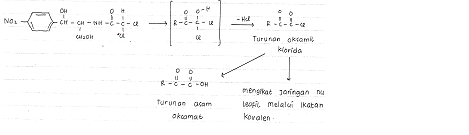 OH O H O O-H O O
NO₂ - CH - CH - NH - C - C - Cl R - C - C - Cl - HCl R - C - C - Cl
CH₂OH Cl Cl
Turunan oksamil
klorida
O O
R - C - C - OH
Turunan asam
oksamat
mengikat jaringan nu
leofil melalui ikatan
kovalen